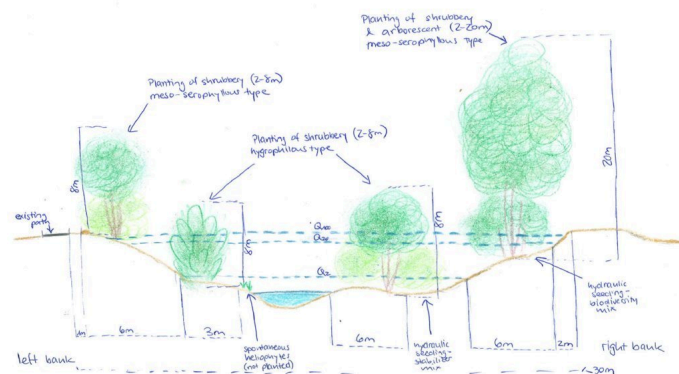 Planting of shrubbery
& arborescent (2-20m)
meso-serophyllous type
Planting of shrubbery (2-8m)
meso-serophyllous type
Planting of shrubbery (2-8m)
hygrophilous type
8m
20m
existing
path
8m
8m
Q₂
hydraulic
seeding-
biodiversity
mix
6m
3m
6m
6m
2m
spontaneous
heliophytes
(not planted)
hydraulic
seeding-
stabilizer
mix
left bank
right bank
~30m